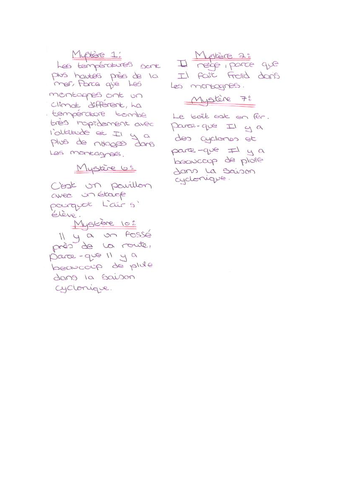 Mystère 1:
Les températures sont
plus hautes près de la
mer, Parce que Les
montagnes ont un
climat différent, La
température tombe
très rapidement avec
l'altitude et Il y a
plus de nuages dans
Les montagnes.
Mystère 6:
C'est un pavillon
avec un étage
pourque L'air s'
élève.
Mystère 10:
Il y a un fossé
près de La route,
Parce-que Il y a
beaucoup de pluie
dans la saison
cyclonique.
Mystère 2:
Il neige, parce que
Il fait froid dans
Les montagnes.
Mystère 7:
Le toit est en fer.
Parce-que Il y a
des cyclones et
parce-que Il y a
beaucoup de pluie
dans La saison
cyclonique.